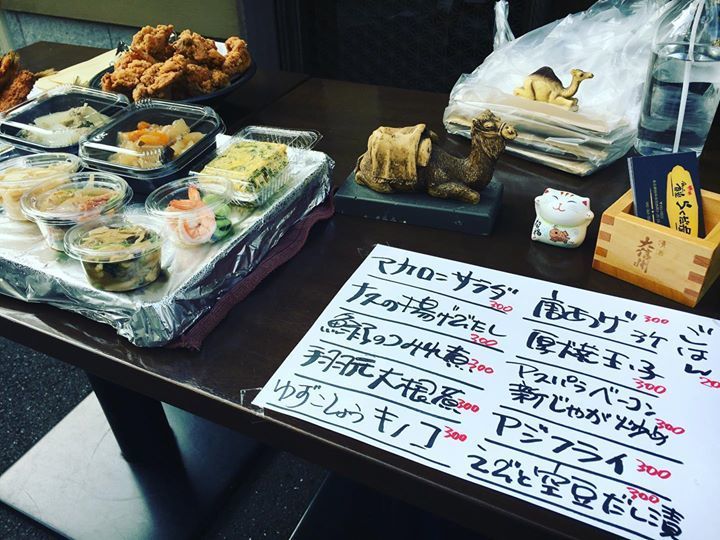 マカロニサラダ
300
ナスの揚げだし
300
鰯のつみれ煮
300
手羽元大根煮
300
ゆずこしょうキノコ
300
唐あげ 5ケ
300
厚焼玉子
300
アスパラベーコン
新じゃが炒め
300
アジフライ
300
エビと空豆だし漬
300
ごはん
20
大信州